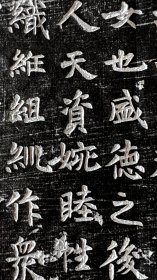 女也盛德之後
人天資婉睦性
織絍組紃作衆